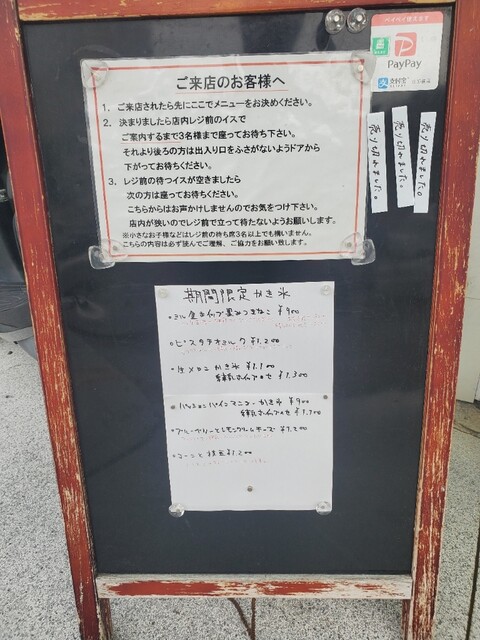 ペイペイ使えます
PayPay
支付宝
売り切れました。
売り切れました。
売り切れました。
ご来店のお客様へ
1. ご来店されたら先にここでメニューをお決めください。
2. 決まりましたら店内レジ前のイスで
ご案内するまで3名様まで座ってお待ち下さい。
それより後ろの方は出入り口をふさがないようドアから
下がってお待ちください。
3. レジ前の待つイスが空きましたら
次の方は座ってお待ちください。
こちらからはお声かけしませんのでお気をつけ下さい。
店内が狭いのでレジ前で立って待たないようお願いします。
※小さなお子様などはレジ前の待ち席3名以上でも構いません。
こちらの内容は必ず読んでご理解、ご協力をお願い致します。
期間限定かき氷
・ミルク金 黒みつきなこ ¥900
・ピスタチオミルク ¥1,200
・生メロンかき氷 ¥1,100
¥1,300
・パッションパインマンゴーかき氷 ¥900
¥1,100
・ブルーベリーとレモンクリームチーズ ¥1,200
・コーンと枝豆 ¥1200